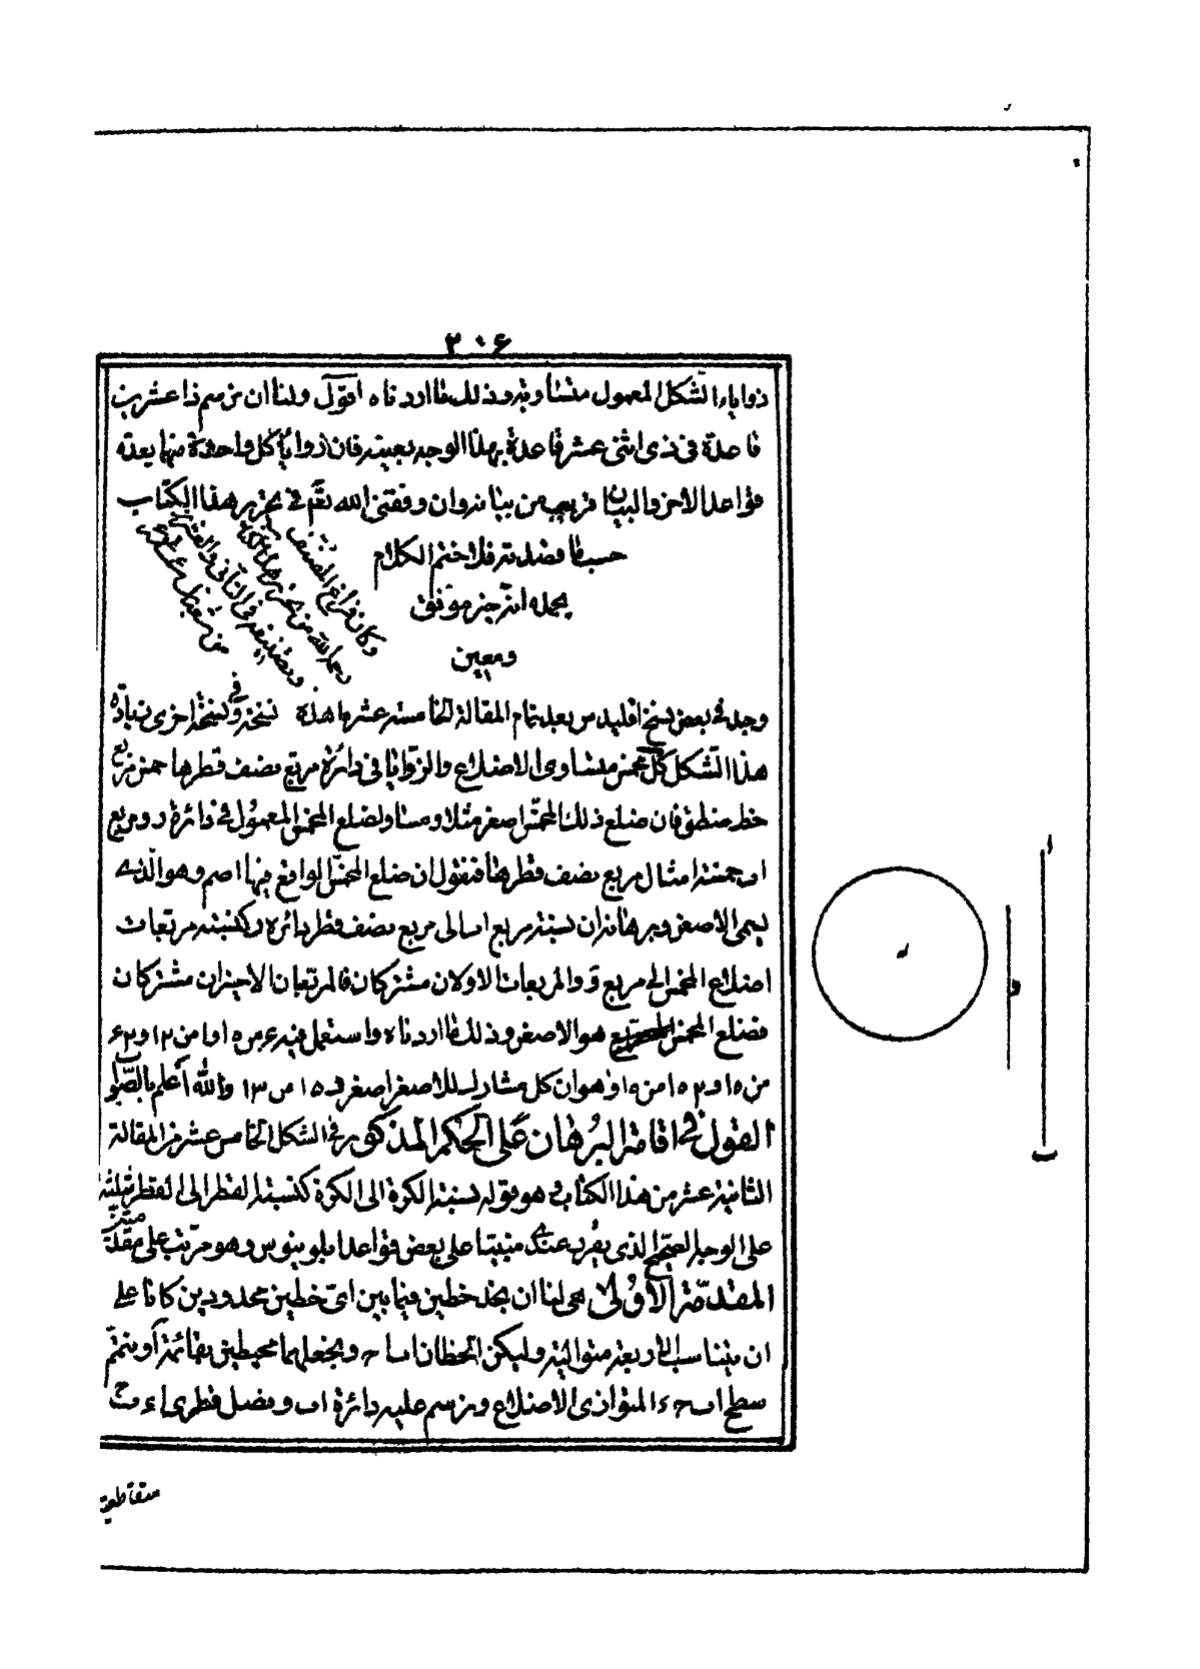 ٣٠۶
زوايا الشكل المعمول متساوية وذلك ما اردناه اقول ولنا ان نرسم ذا عشرين
قاعدة فى ذى اثنى عشر قاعدة بهذا الوجه بعينه فان زوايا كل واحدة منها بعدة
قواعد الاخر والبيان قريب من بيانه وان وفقنى الله تعالى فى تحرير هذا الكتاب
حسب ما قصدته فلاختم الكلام
بحمده انه خير موفق
ومعين
وكان فراغ المصنف
رحمه الله من تحرير هذا الكتاب
وتصنيفه فى الثانى والعشرين
من شعبان
وجد فى بعض نسخ اقليدس بعد تمام المقالة الخامسة عشر ما هذه نسخته وفى نسخة اخرى زيادة
هذا الشكل كل مخمس متساوى الاضلاع والزوايا فى دائرة مربع نصف قطرها خمس مربع
خط منطق فان ضلع ذلك المخمس اصغر مثلا ومساو لضلع المخمس المعمول فى دائرة د ومربع
اب خمسة امثال مربع نصف قطرها فنقول ان ضلع المخمس الواقع فيها اصم وهو الذى
يسمى الاصغر وبرهانه ان نسبة مربع اب الى مربع نصف قطر دائرة د كنسبة مربعات
اضلاع المخمس الى مربع و والمربعات الاولان مشتركان فالمربعان الاخيران مشتركان
فضلع المخمس هو الاصغر وذلك ما اردناه واستعمل فيه
من ١٥ وهو ان كل مشارك للاصغر اصغر ١٥ من ١٣ والله أعلم بالصواب
القول فى اقامة البرهان على الحكم المذكور فى الشكل الخامس عشر من المقالة
الثانية عشر من هذا الكتاب وهو قوله نسبة الكرة الى الكرة كنسبة القطر الى القطر مثلثة
على الوجه الصحيح الذى يقرب عندك مبنيا على بعض قواعد ابلونيوس وهو مرتب على مقدمتين
المقدمة الأولى هى لنا ان نجد خطين فيما بين اى خطين محدودين كانا على
ان يتناسب الاربعة متوالية وليكن الخطان اب ب ح ونجعلهما محيطين بقائمة ا ونتمم
سطح اب ح ء المتوازى الاضلاع ونرسم عليه دائرة اب ونصل قطرى اء ب ح
متقاطعة
ا
د
و
ب